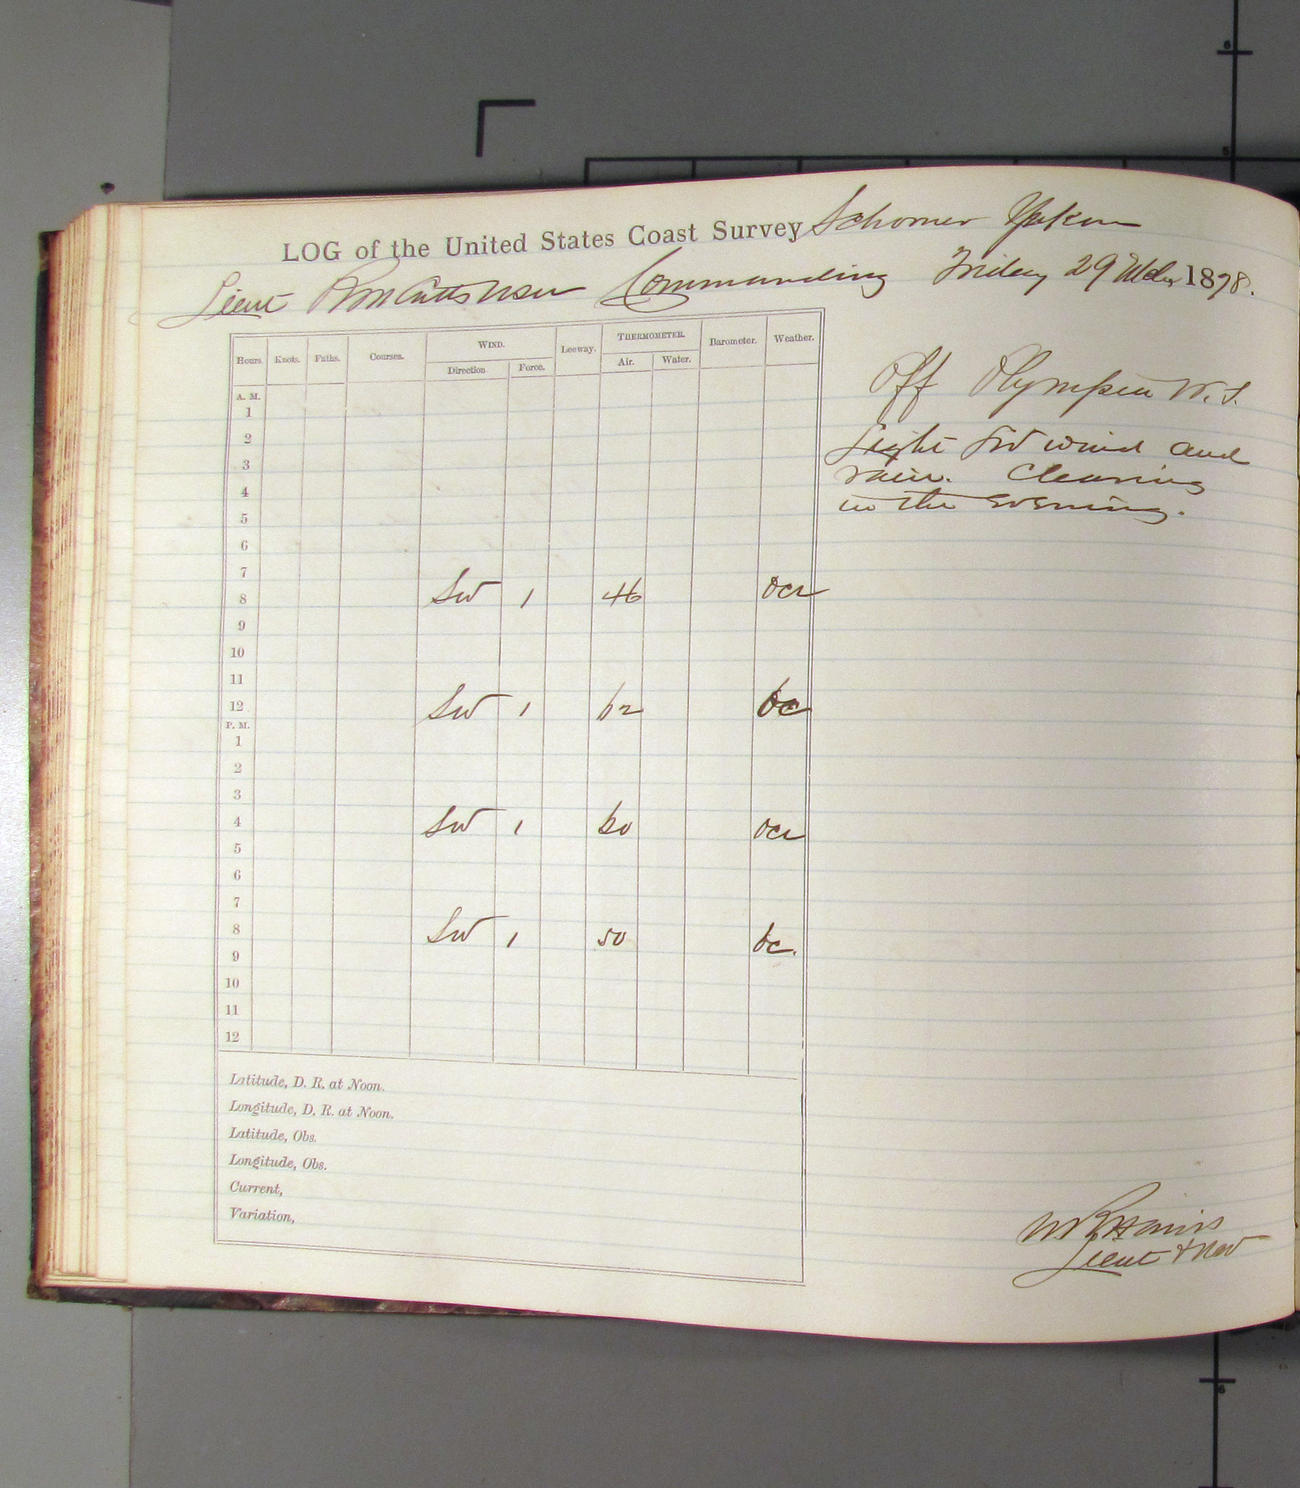 LOG of the United States Coast Survey Schooner Yukon
Lieut R M Cutts USN Commanding Friday 29 Mch 1878.
Hours. Knots. Faths. Courses. WIND. Leeway. THERMOMETER. Barometer. Weather.
Direction. Force. Air. Water.
A. M.
1
2
3
4
5
6
7
8 SW 1 46 ocr
9
10
11
12 SW 1 62 bc
P. M.
1
2
3
4 SW 1 60 ocr
5
6
7
8 SW 1 50 bc.
9
10
11
12
Latitude, D. R. at Noon.
Longitude, D. R. at Noon.
Latitude, Obs.
Longitude, Obs.
Current,
Variation,
Off Olympia W. T.
Light SW wind and
rain. Clearing
in the evening.
Lieut
6
5
6